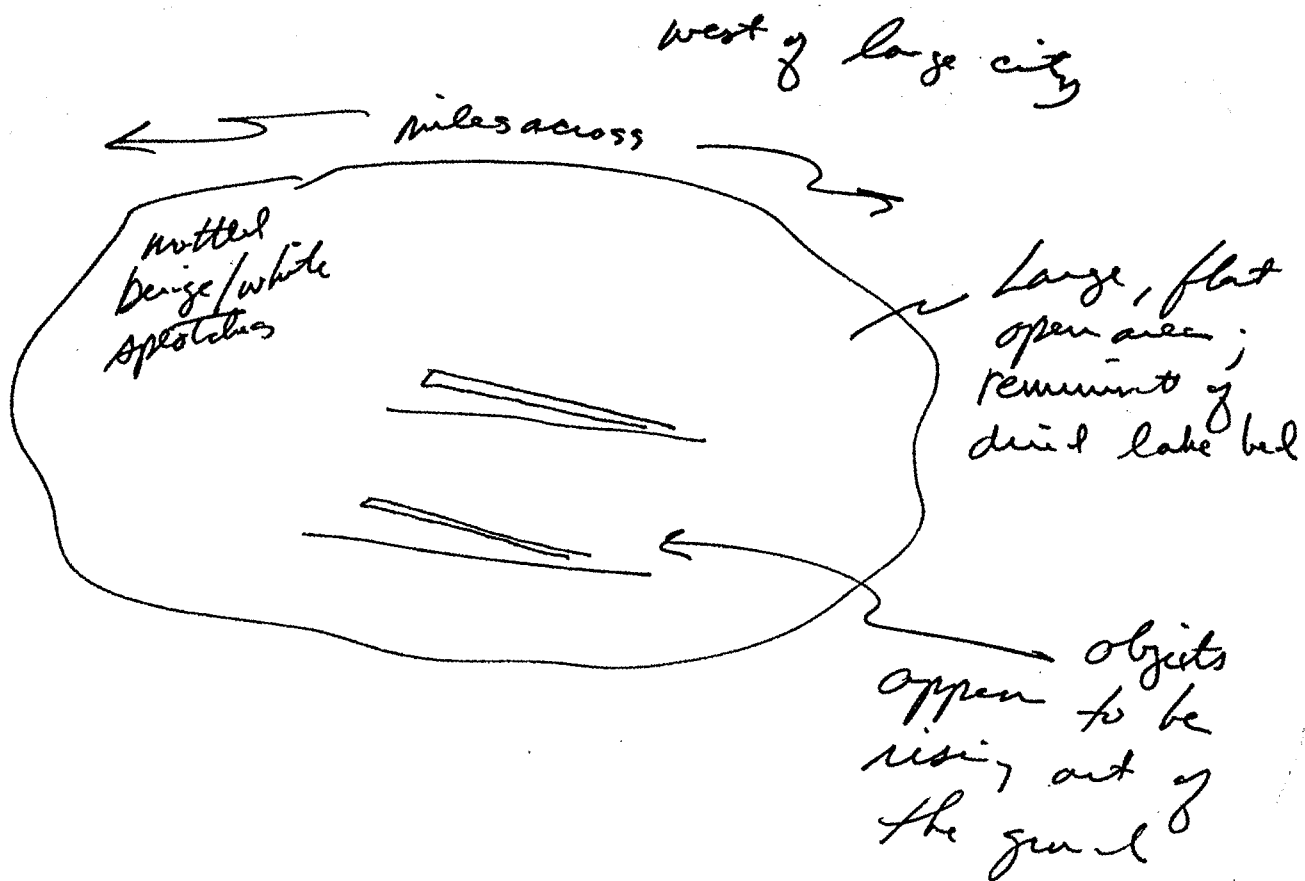 west of large city
miles across
mottled
beige/white
splotches
Large, flat
open area;
reminint of
dried lake bed
objects
appear to be
rising out of
the ground